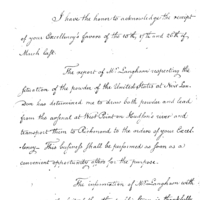 I have the honor to acknowledge the receipt
of your Excellency's favors of the 10th, 17th and 26th of
March last.
The report of Mr Langham respecting the
situation of the powder of the United States at New Lon
don has determined me to draw both powder and lead
from the arsenal at West Point on Hudson's river and
transport them to Richmond to the orders of your Excel
lency. This business shall be performed as soon as a
convenient opportunity offers for the purpose.
The information of Mr Langham with